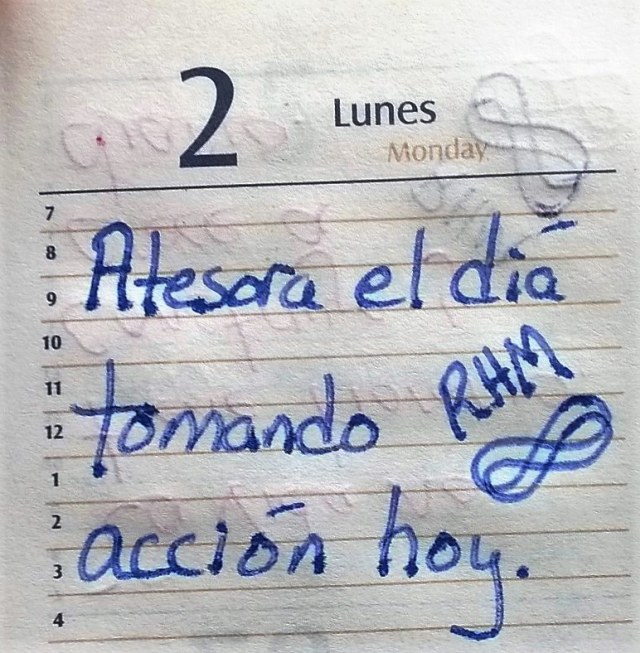 2 Lunes
Monday
7
8
Atesora el día
9
10
RHM
11
tomando
12
1
2
acción hoy.
3
4